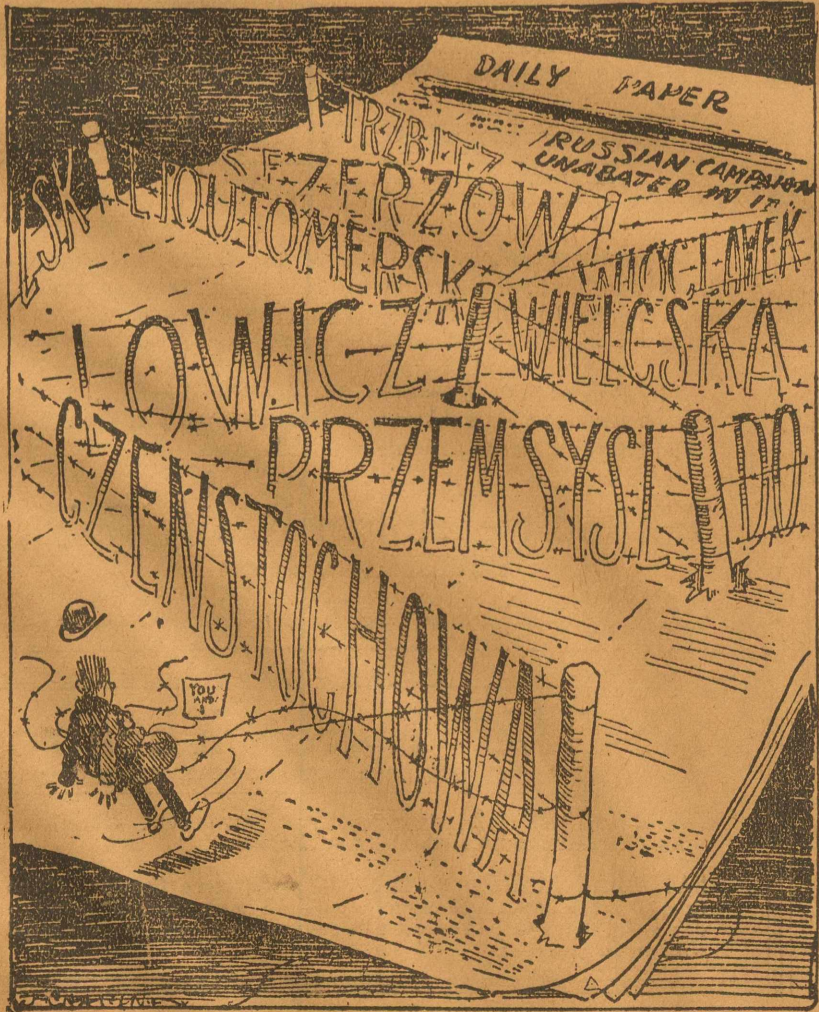 DAILY PAPER
RUSSIAN CAMPAIGN
UNABATED IN IT'
TRZBITZ
SEZERZOW
LSK
LIOUTOMERSK
WIOCLAWEK
LOWICZ
WIELCSKA
PRZEMSYSL
DO
CZENSTOCHOWA
YOU
AND
I